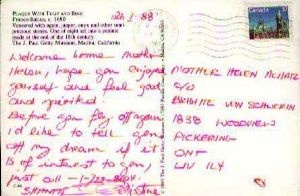 PLAQUE WITH TULIP AND BIRD,
Franco-Italian, c. 1680
Veneered with agate, jasper, onyx and other semi-
precious stones. One of eight set into a
made at the end of the 18th century
The J. Paul Getty Museum, Malibu, California
CANADA 37
Welcome home Mother
Helen, hope you enjoyed
yourself and feel good
and spirited
Before you fly off again
I'd like to tell you
off my dream if it
is of interest to you,
Just call
MOTHER HELEN
C/O
BRIGITTE VON SCHWERIN
1838 WOODVIEW
PICKERING
ONT
L1V 1L4